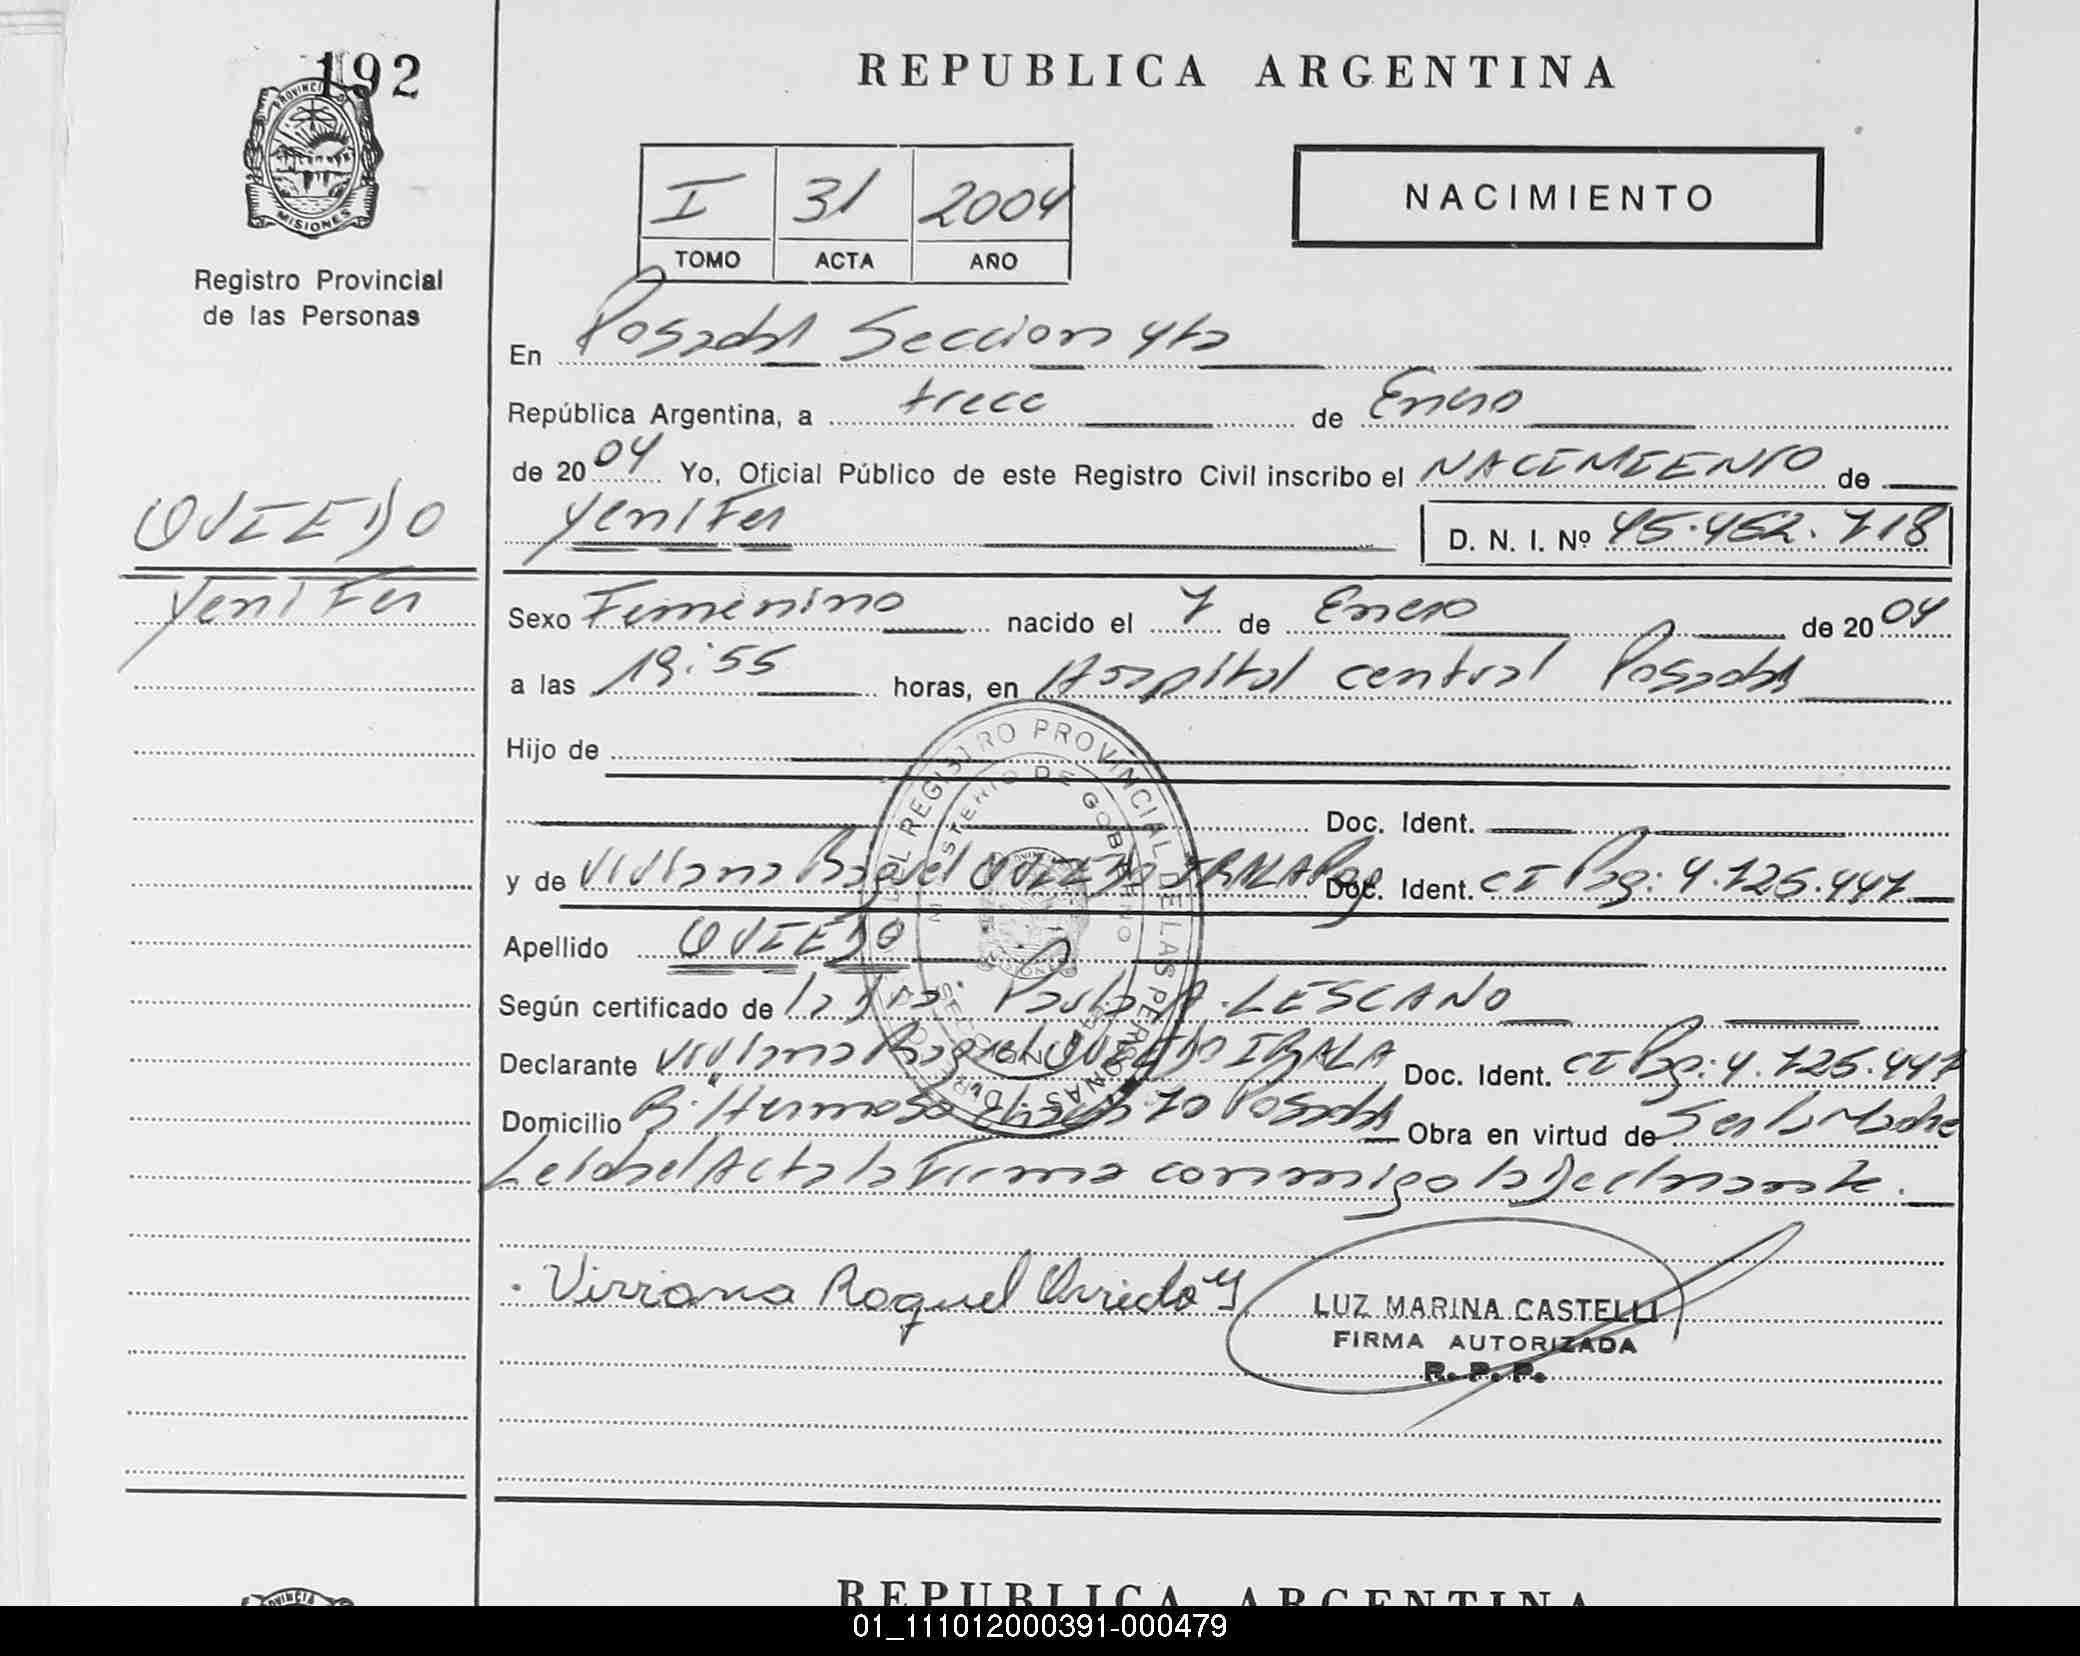 192
REPUBLICA ARGENTINA
PROVINCIA D
MISIONES
I 31 2004
TOMO ACTA AÑO
NACIMIENTO
Registro Provincial
de las Personas
En Posadas Seccion 4ta
República Argentina, a trece de Enero
de 20 04 Yo, Oficial Público de este Registro Civil inscribo el NACIMIENTO de
Yenifer D. N. I. Nº 45.452.718
OVIEDO
Yenifer
Sexo Femenino nacido el 7 de Enero de 20 04
a las 19:55 horas, en Hospital central Posadas
Hijo de
Doc. Ident.
y de Viviana Raquel OVIEDO IRALA Pag Doc. Ident. CI Pag: 4.725.447
Apellido OVIEDO
Según certificado de la Dra. Paula A. LESCANO
Declarante Viviana Raquel OVIEDO IRALA Doc. Ident. CI Pag: 4.725.447
Domicilio B: Hermoso 70 Posadas Obra en virtud de Ser la Madre
Leida el Acta la Firma conmigo la Declarante.
REGISTRO PROVINCIAL DE LAS PERSONAS
MINISTERIO DE GOBIERNO
SECCION
Viviana Raquel Oviedo Y
LUZ MARINA CASTELLI
FIRMA AUTORIZADA
R. P. P.
REPUBLICA ARGENTINA
01_111012000391-000479